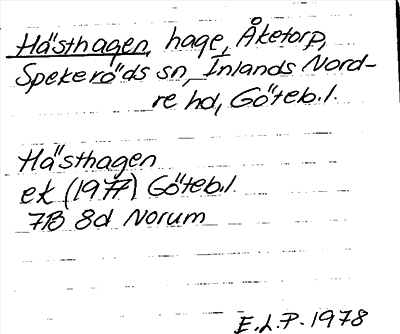 Hästhagen, hage, Åketorp,
Spekeröds sn, Inlands Nord-
re hd, Göteb.l.
Hästhagen
ek (1977) Göteb.l.
7B 8d Norum
E.L.P. 1978